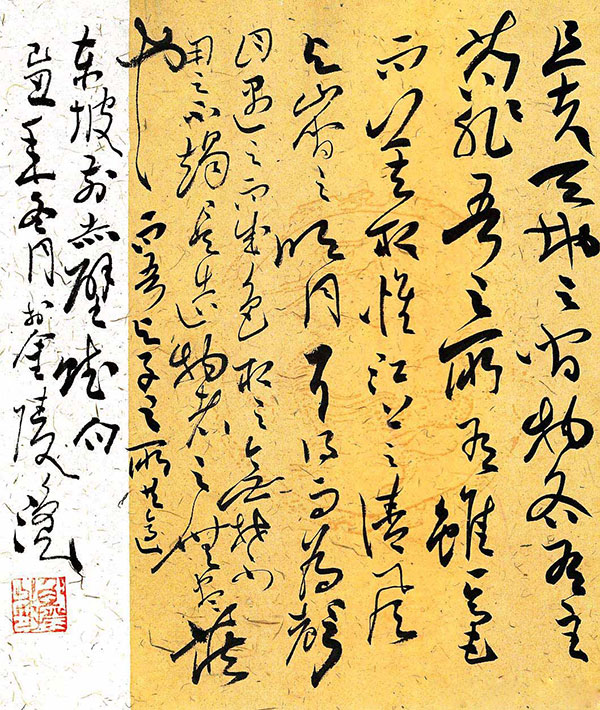 且夫天地之间物各有主
苟非吾之所有虽一毫
而莫取惟江上之清风
与山间之明月耳得而为声
目遇之而成色取之无禁
用之不竭是造物者之无尽藏
也而吾与子之所共适
东坡前赤壁赋句
己丑年冬月於金陵